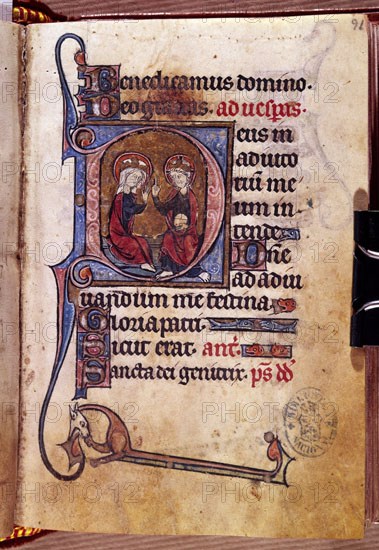 91
Benedicamus domino.
Deo gratias. ad uesp̄as.
Deus in
adiuto
riū me
um in
tende.
Dn̄e
ad adiu
uandum me festina.
Gloria patri.
Sicut erat. ant̄.
Sancta dei genitrix. ps̄
PHOTO 12